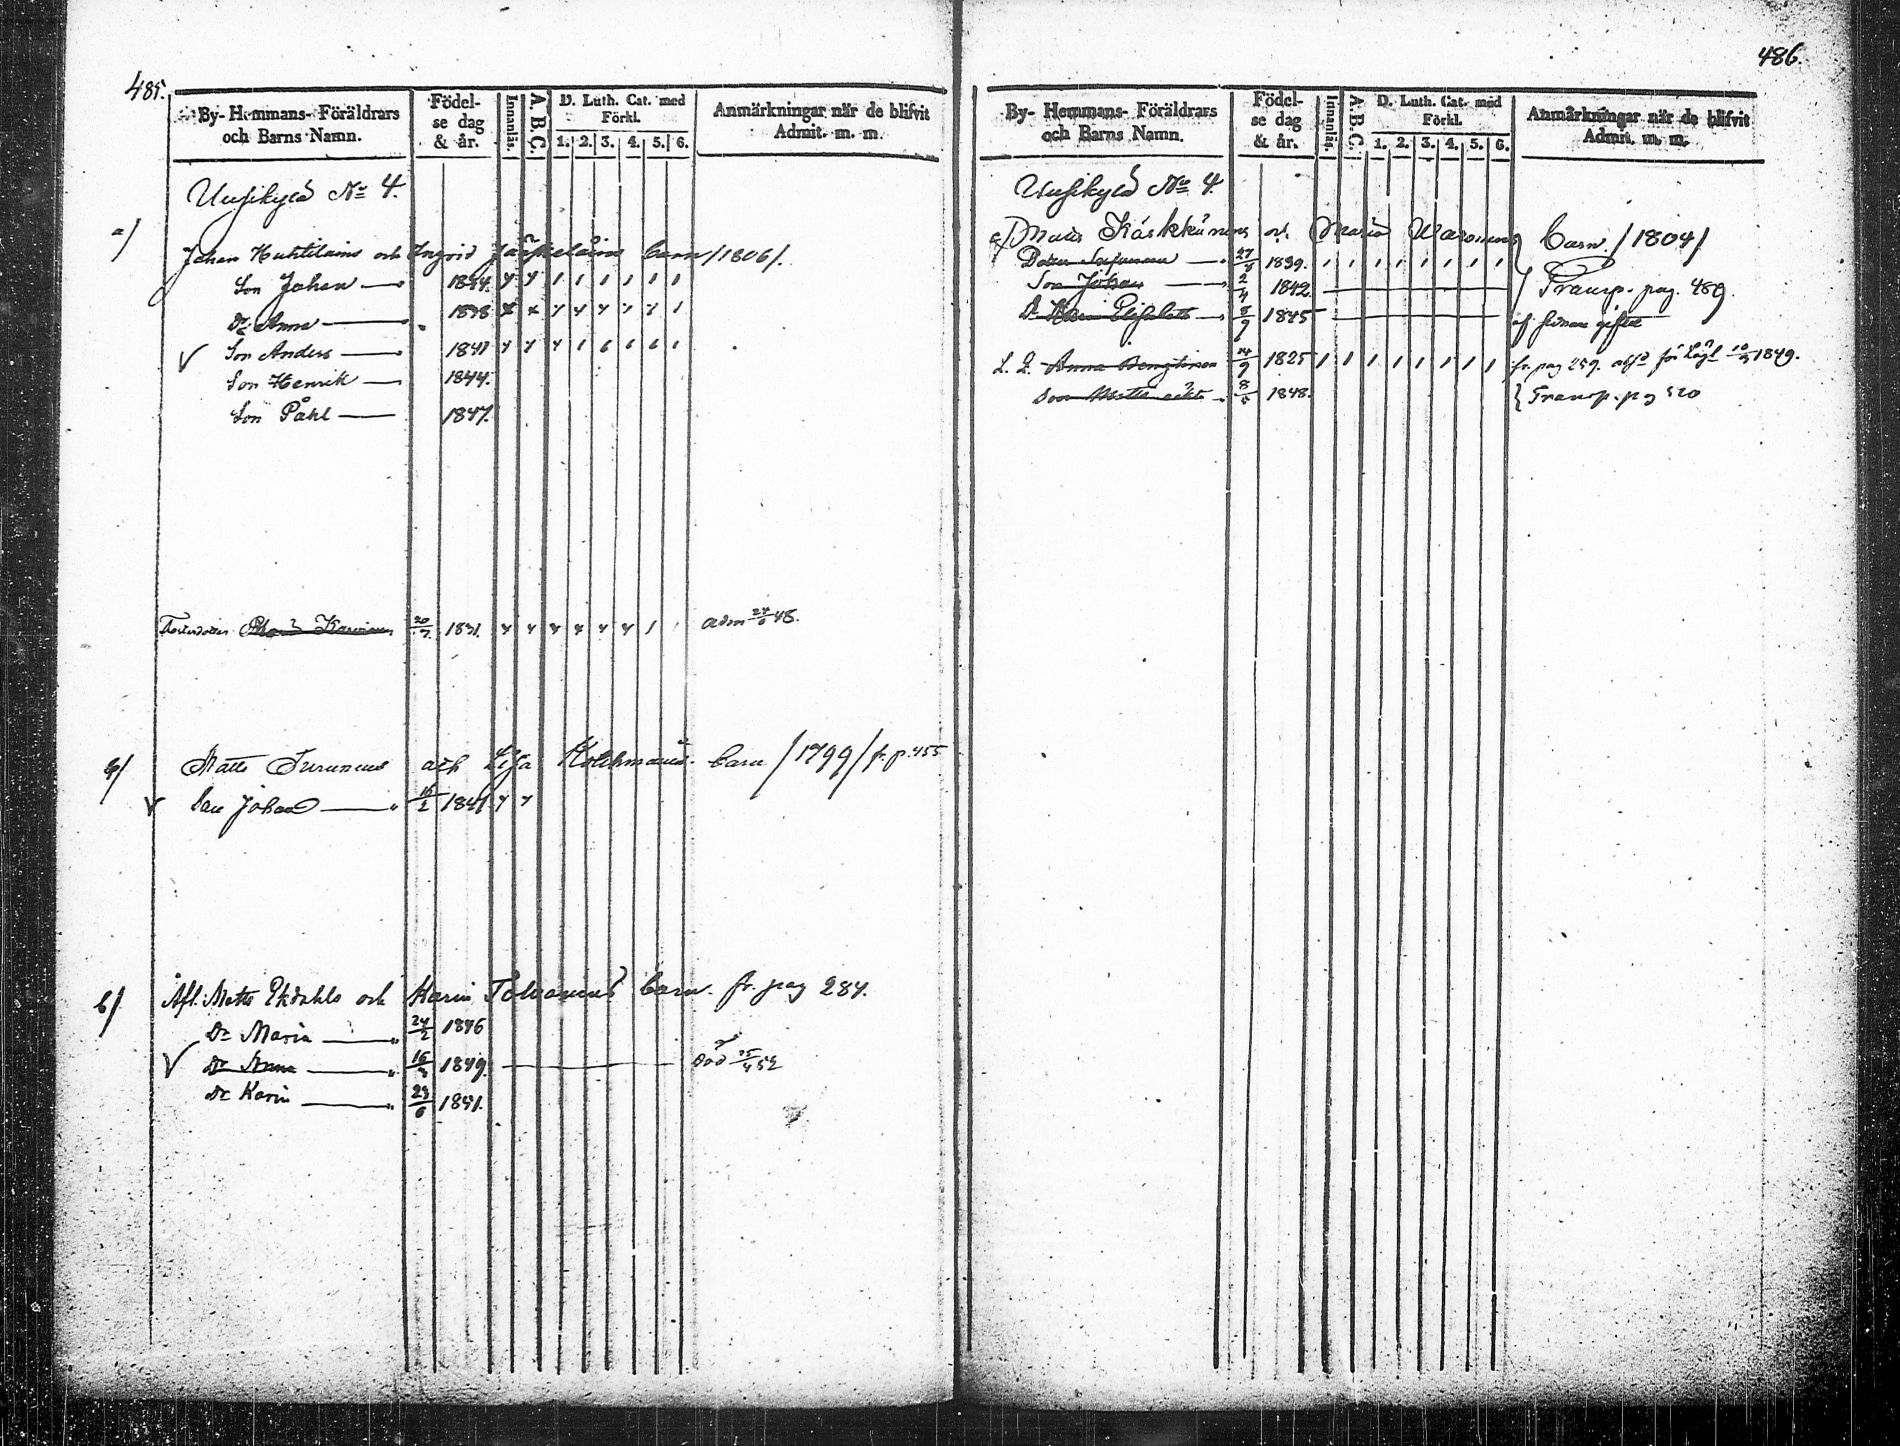 485.
By- Hemmans- Föräldrars och Barns Namn.
Födelse dag & år.
Innanläs.
A.B.C.
D. Luth. Cat. med Förkl.
1. 2. 3. 4. 5. 6.
Anmärkningar när de blifvit Admit. m. m.
Uusikylä No 4.
a/
Johan Huhtilains och Ingrid barn /1806/.
Son Johan 1834.
Dr Anna 1838
Son Anders 1841
Son Henrik 1844.
Son Påhl 1847.
Karvinen 20/7 1831. adm 24/6 48.
Matts Turunens och Lisa Kolehmains barn /1799/ fr. p. 455
Son Johan 16/2 1841
b/ Afl. Matts Ekdahls och Karin Tolvanens barn. fr. pag 284.
Dr Maria 24/2 1846
Dr Anna 1849. död 52
Dr Karin 23/6 1851.
486.
By- Hemmans- Föräldrars och Barns Namn.
Födelse dag & år.
Innanläs.
A.B.C.
D. Luth. Cat. med Förkl.
1. 2. 3. 4. 5. 6.
Anmärkningar när de blifvit Admit. m. m.
Uusikylä No 4.
Kärkkäinens och Maria Waronens barn. /1804/
Dotter 1839.
Son Johan 2/4 1842. Transp. pag. 489
Dr Elisabeth 8/9 1845
Anna Bengtinen 14/9 1825 fr. pag 259. 1849.
Son Matts 1848. Transp. pag 520